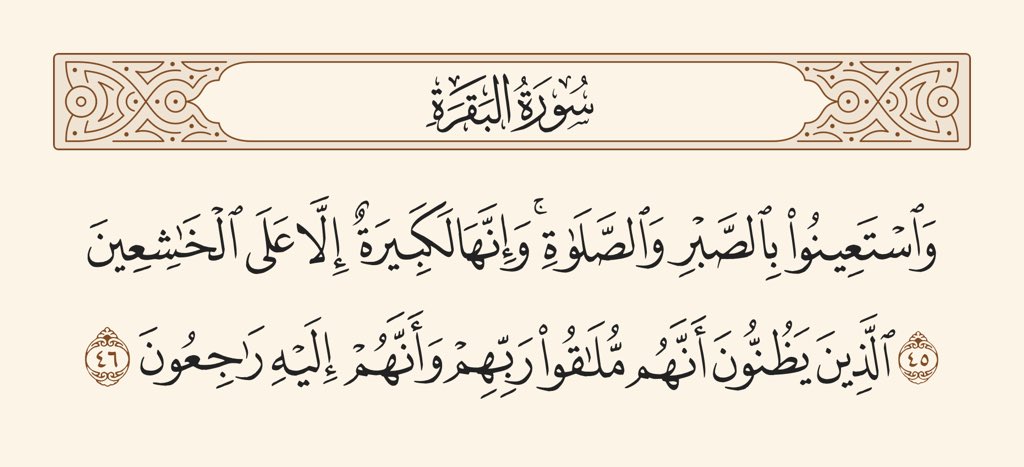 سُورَةُ البَقَرَةِ
وَٱسۡتَعِينُواْ بِٱلصَّبۡرِ وَٱلصَّلَوٰةِۚ وَإِنَّهَا لَكَبِيرَةٌ إِلَّا عَلَى ٱلۡخَٰشِعِينَ
٤٥ ٱلَّذِينَ يَظُنُّونَ أَنَّهُم مُّلَٰقُواْ رَبِّهِمۡ وَأَنَّهُمۡ إِلَيۡهِ رَٰجِعُونَ ٤٦